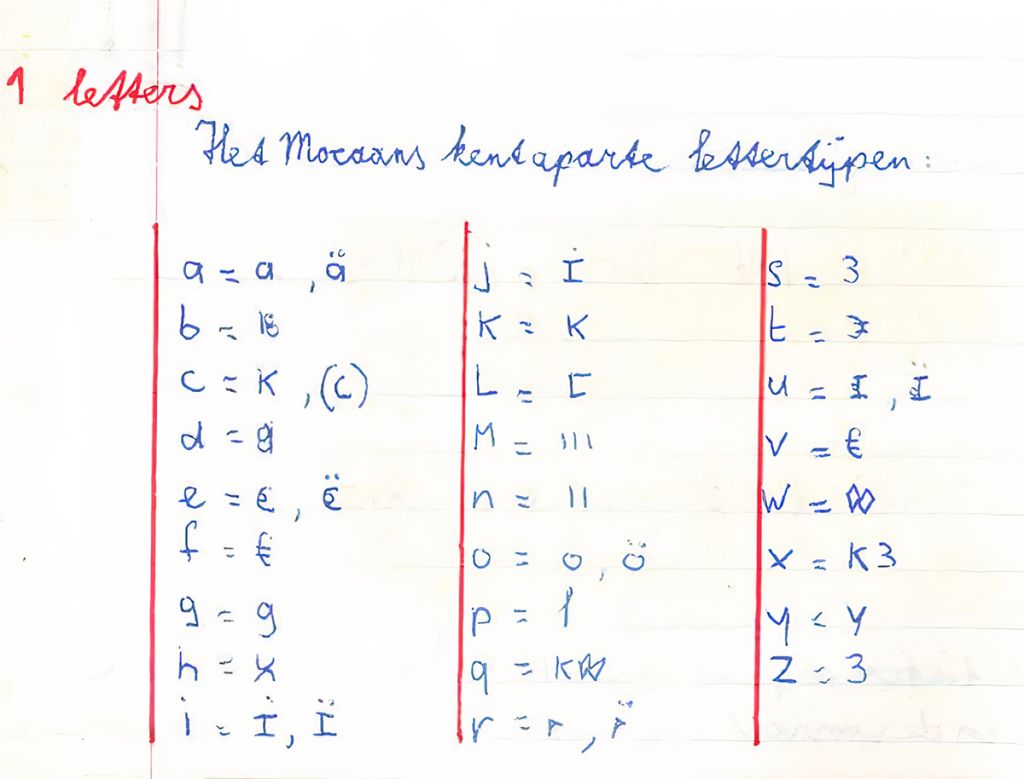 1 letters
Het Mocaans kent aparte lettertijpen:
a = a, ä
b =
c = K, (C)
d =
e = є, ë
f = €
g = g
h = x
i = İ, Ï
j = İ
K = K
L = C
M = III
n = II
o = o, ö
p = ſ
q = KW
r = r, r̈
s = 3
t =
u = I, Ï
v = €
W = W
x = K3
y = y
z = 3